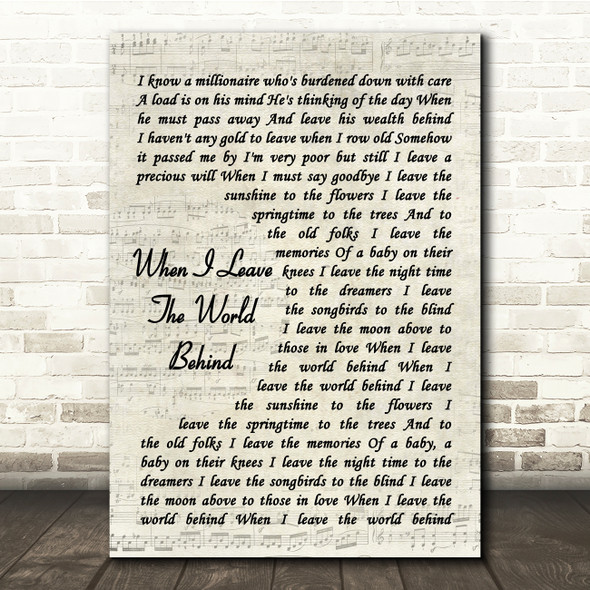 I know a millionaire who's burdened down with care
A load is on his mind He's thinking of the day When
he must pass away And leave his wealth behind
I haven't any gold to leave when I row old Somehow
it passed me by I'm very poor but still I leave a
precious will When I must say goodbye I leave the
sunshine to the flowers I leave the
springtime to the trees And to
the old folks I leave the
memories Of a baby on their
knees I leave the night time
to the dreamers I leave
the songbirds to the blind
I leave the moon above to
those in love When I leave
the world behind When I
leave the world behind I leave
the sunshine to the flowers I
leave the springtime to the trees And to
the old folks I leave the memories Of a baby, a
baby on their knees I leave the night time to the
dreamers I leave the songbirds to the blind I leave
the moon above to those in love When I leave the
world behind When I leave the world behind
When I Leave
The World
Behind